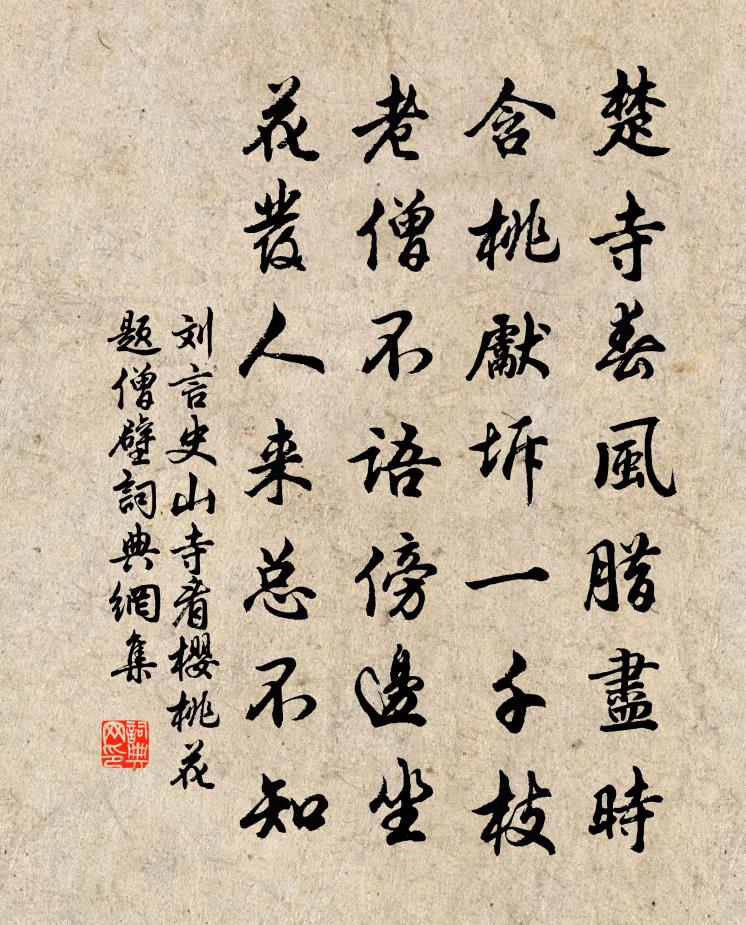 楚寺春風腊盡時
含桃獻坼一千枝
老僧不語傍邊坐
花發人来总不知
刘言史山寺看櫻桃花
题僧壁詞典網集
詞典
网印